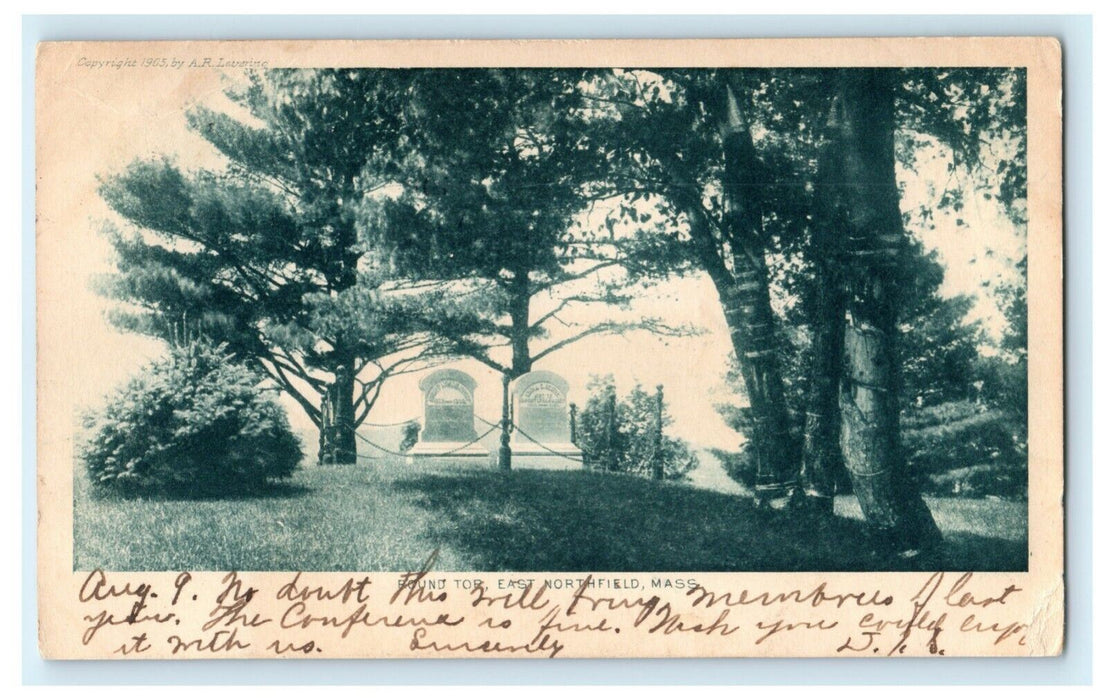 Copyright 1905, by A.R. Levering
ROUND TOP, EAST NORTHFIELD, MASS.
Aug. 9. No doubt this will bring memories of last
year. The Conference is fine. Wish you could enjoy
it with us. Sincerely